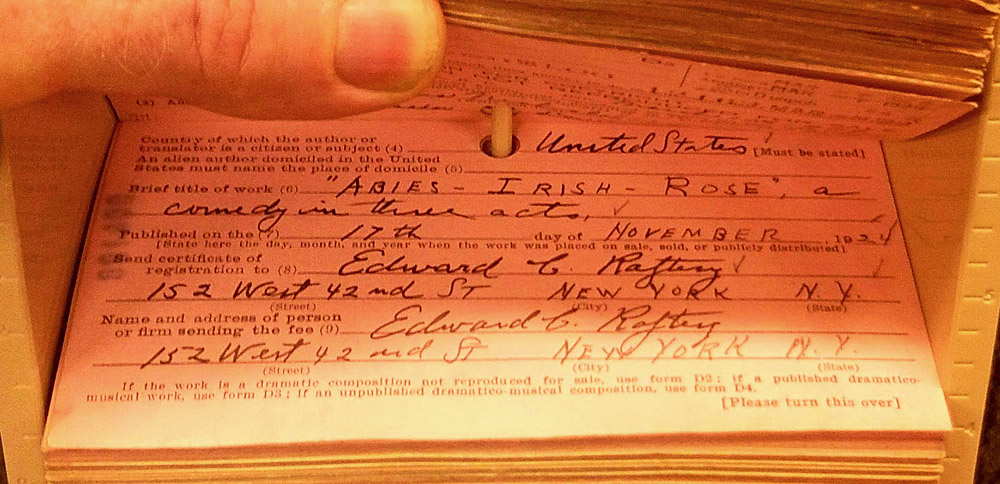 Country of which the author or
translator is a citizen or subject (4) United States [Must be stated]
An alien author domiciled in the United
States must name the place of domicile (5)
Brief title of work (6) "ABIES - IRISH - ROSE", a
comedy in three acts,
Published on the (7) 17th day of NOVEMBER, 1924
[State here the day, month, and year when the work was placed on sale, sold, or publicly distributed]
Send certificate of
registration to (8) Edward C. Raftery
152 West 42nd ST NEW YORK N. Y.
(Street) (City) (State)
Name and address of person
or firm sending the fee (9) Edward C. Raftery
152 West 42nd ST NEW YORK N. Y.
(Street) (City) (State)
If the work is a dramatic composition not reproduced for sale, use form D2; if a published dramatico-
musical work, use form D3; if an unpublished dramatico-musical composition, use form D4.
[Please turn this over]